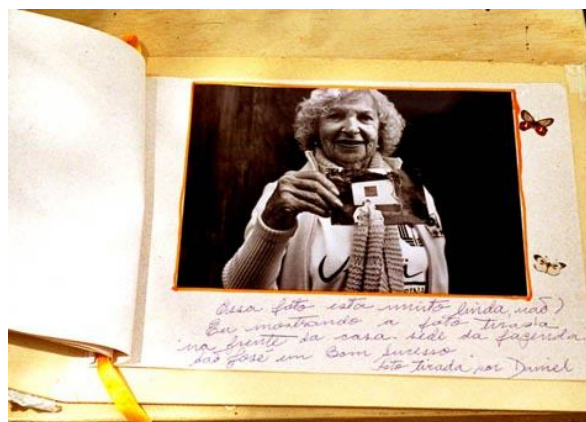 Essa foto está muito linda, não?
Eu mostrando a foto tirada
na frente da casa sede da fazenda
São José em Bom Sucesso
foto tirada por Daniel